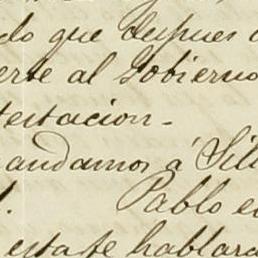 do que despues
erse al Gobierno
testacion -
andamos á Sil
Pablo e
esta te hablara